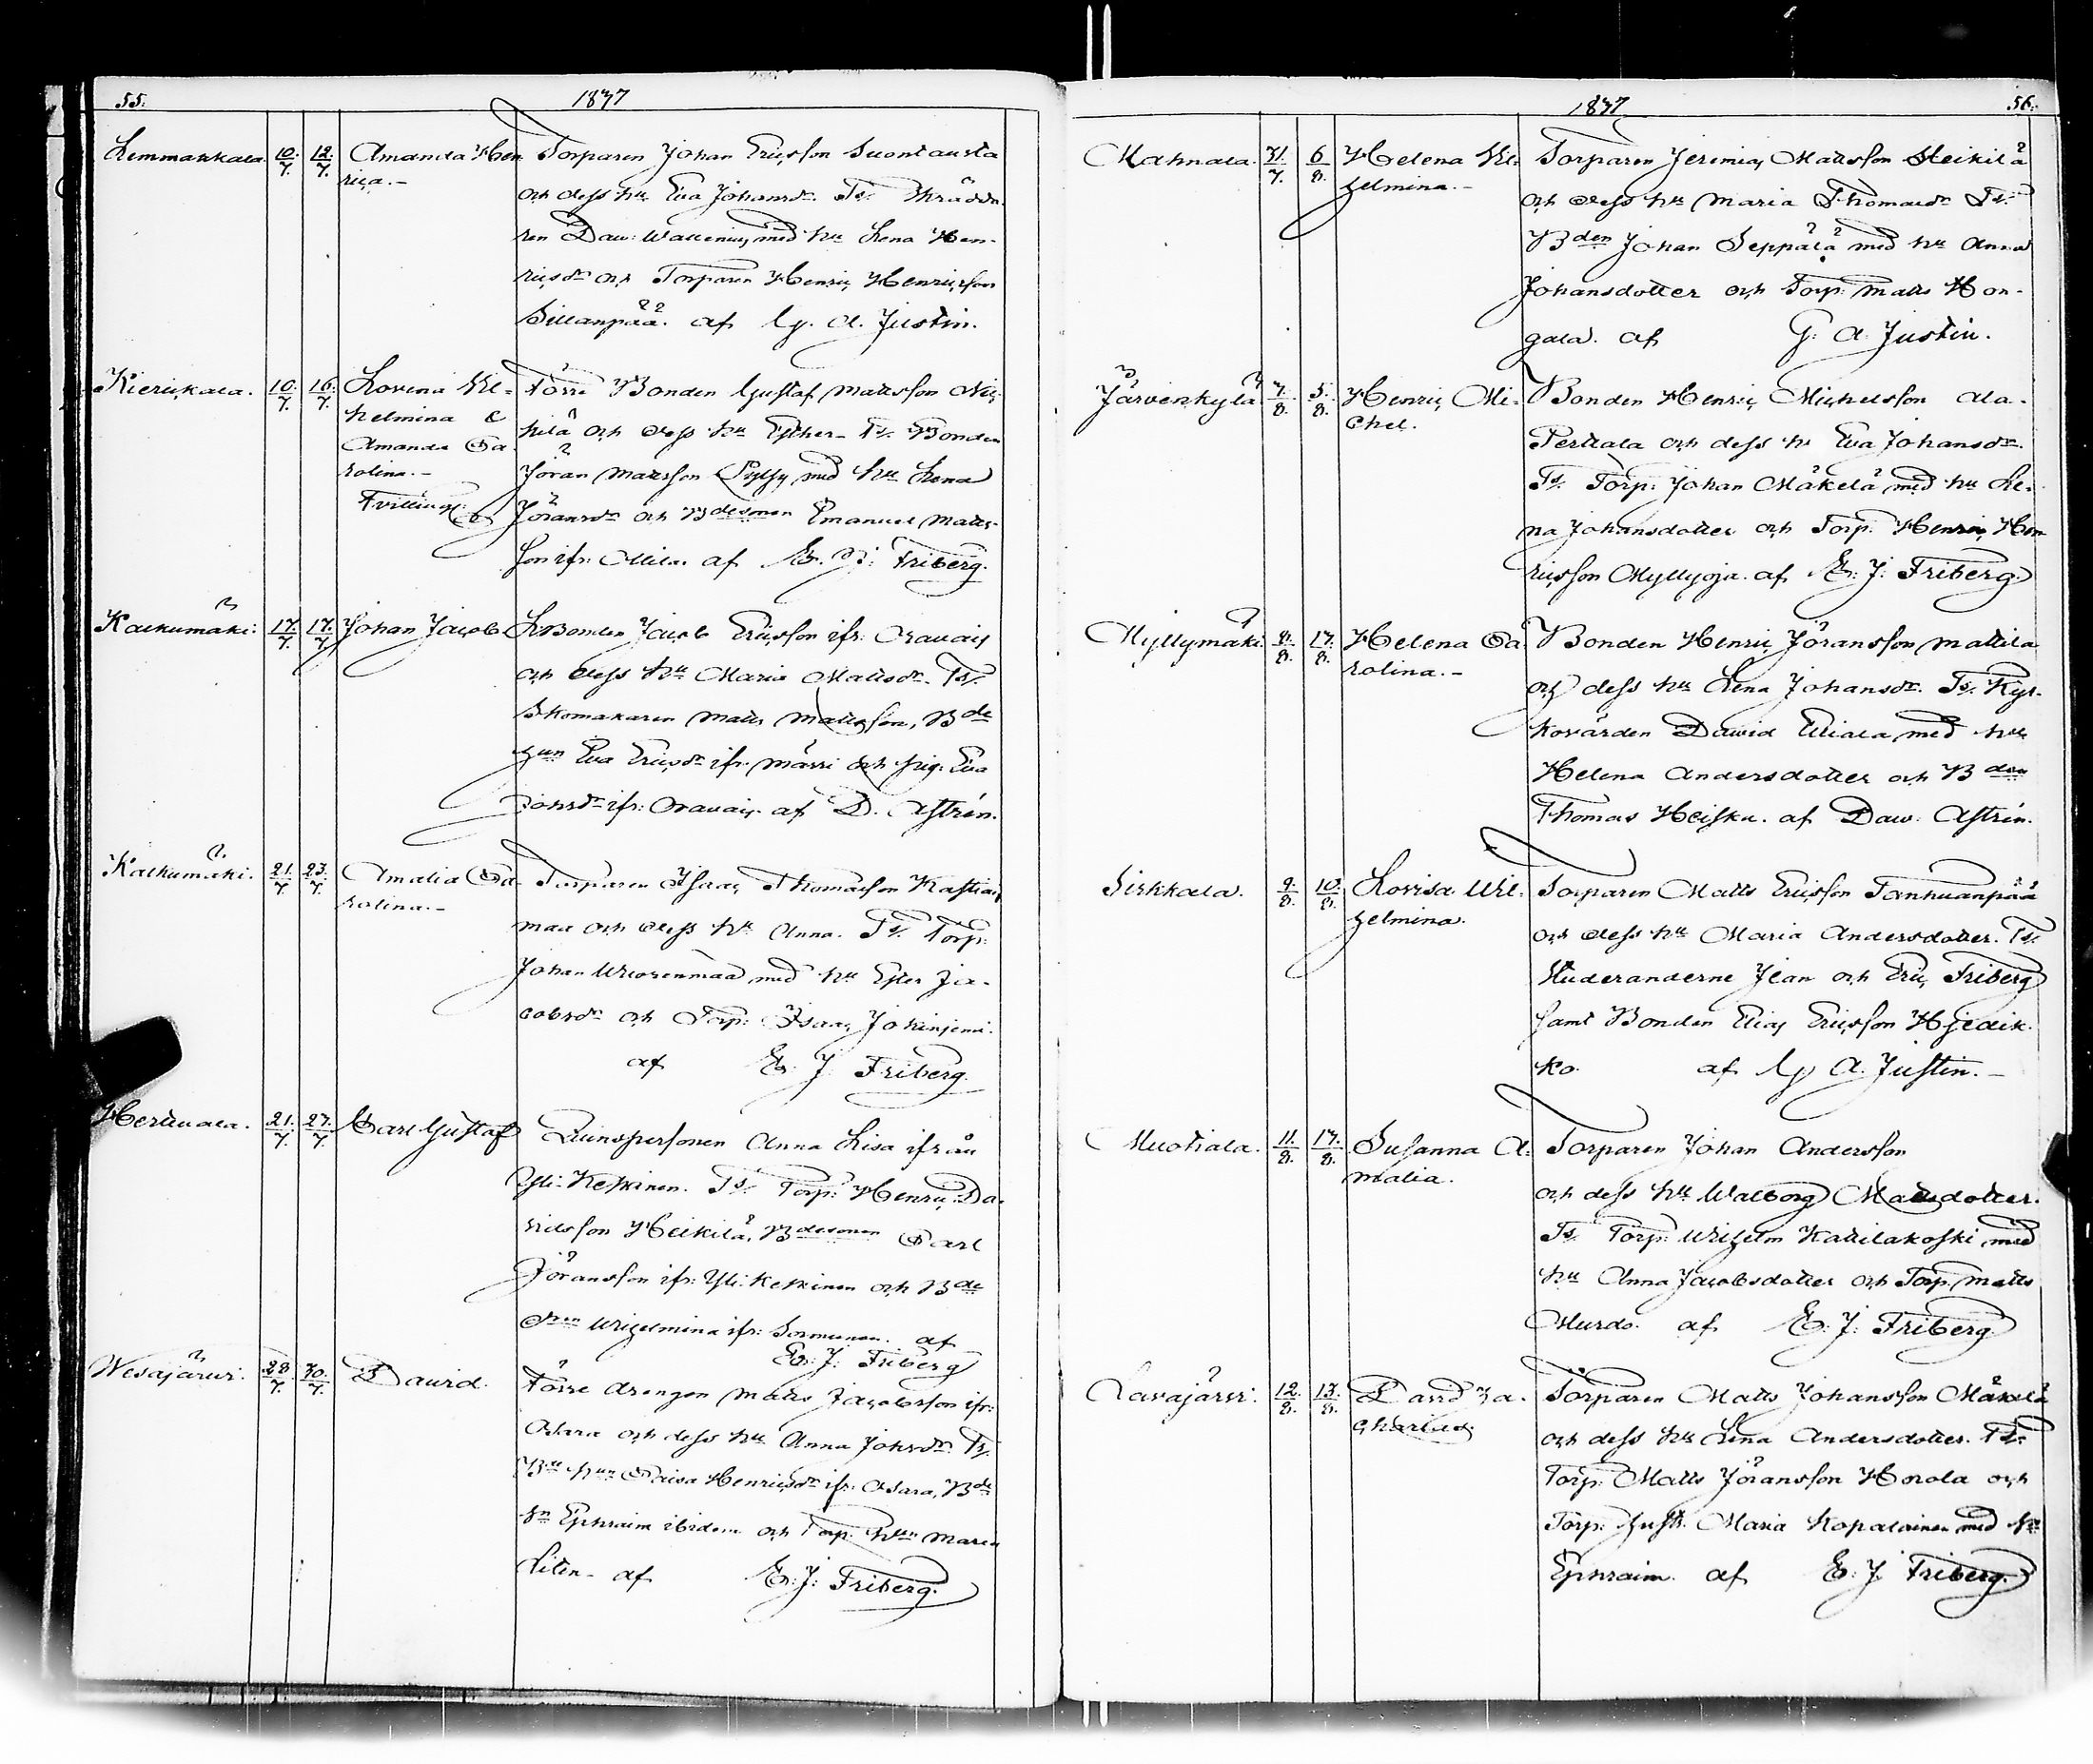 55.
1837
Lemmakkala. 10/7. 12/7. Amanda Hen Torparen Johan Ericsson Suontausta
rica.- och dess hu Eva Johansdr. Ts. Skrädda
ren Daw: Wallenius med hu Lena Hen-
ricsdr och Torparen Henric Henricsson
Sillanpää. af G. A. Justin.
Kierikkala. 10/7. 16/7. Lovina Vil- Förre Bonden Gustaf Mattsson
helmina & kilä och dess hu Esther- Ts. Bonden
Amanda Ca Jöran Mattsson med hu Lena
rolina.- Jöransdr och Bdesonen Emanuel Matts-
Tvillingar son ifr: af E. J. Friberg.
Kalkumäki: 17/7. 17/7 Johan Jacob Bonden Jacob Ericsson ifr: Oravais
och dess hu Maria Mattsdr. Ts.
Skomakaren Matts Mattsson, Bde
hun Eva Ericsdr ifr Märri och pig. Eva
Johsdr ifr: Oravais. af D. Astrén.
Kalkumäki. 21/7. 23/7. Amalia Ca- Torparen Isaac Thomasson
rolina.- maa och dess hu Anna. Ts. Torp:
Johan Wuorenmaa med hu Ester Ja-
cobsdr och Torp: Isaac Jokiniemi.
af E. J. Friberg.
Herttuala. 21/7. 23/7. Carl Gustaf Quinspersonen Anna Lisa ifrån
Yli-Keskinen. Ts. Torp: Henric Da-
vidsson Heikilä, Bdesonen Carl
Jöransson ifr: Yli-Keskinen och Bde
dren Wilhelmina ifr: Sormunen. af
E. J. Friberg
Wesajärvi. 28/7. 30/7. David. Förre drengen Matts Jacobsson ifr:
Osara och dess hu Anna Johsdr. Ts.
Bde hun Caisa Henricsdr ifr: Osara, Bde
sn Ephraim ibidem och Torp. hun Maria
Liten- af E. J. Friberg.
1837
56.
Mahnala. 31/7. 6/8. Helena Vil- Torparen Jeremias Mattsson Heikilä
helmina.- och dess hu Maria Thomasdr Ts.
Bden Johan Seppälä med hu Anna
Johansdotter och Torp: Matts Hon-
gala. af G. A. Justin.
Järvenkylä 3/8. 5/8. Henric Mi- Bonden Henric Michelsson Ala-
chel. Perttala och dess hu Eva Johansdr.
Ts. Torp: Johan Mäkelä med hu Le-
na Johansdotter och Torp. Henric Hen
ricsson Myllyoja. af E. J. Friberg.
Myllymäki. 8/8. 13/8. Helena Ca Bonden Henric Jöransson Mattila
rolina.- och dess hu Lena Johansdr. Ts. Kyr-
kovärden Dawid Eliala med hu
Helena Andersdotter och Bden
Thomas Heisku. af Daw. Astrén.
Sirkkala. 9/8. 10/8. Lovisa Wil- Torparen Matts Ericsson Tanhuanpää
helmina. och dess hu Maria Andersdotter. Ts.
Studeranderne Jean och Eric Friberg
samt Bonden Elias Ericsson Hjedik-
ko. af G. A. Justin.-
Muotiala. 11/8. 13/8. Susanna A- Torparen Johan Andersson
malia. och dess hu Walborg Mattsdotter.
Ts. Torp: Wilhelm Kattilakoski med
hu Anna Jacobsdotter och Torp. Matts
Murdo. af E. J. Friberg.
Lavajärvi. 12/8. 13/8. David Za- Torparen Matts Johansson Mäkelä
charias. och dess hu Lena Andersdotter. Ts.
Torp: Matts Jöransson Horola och
Torp. hust. Maria Kopalainen med sn
Ephraim. af E. J. Friberg.